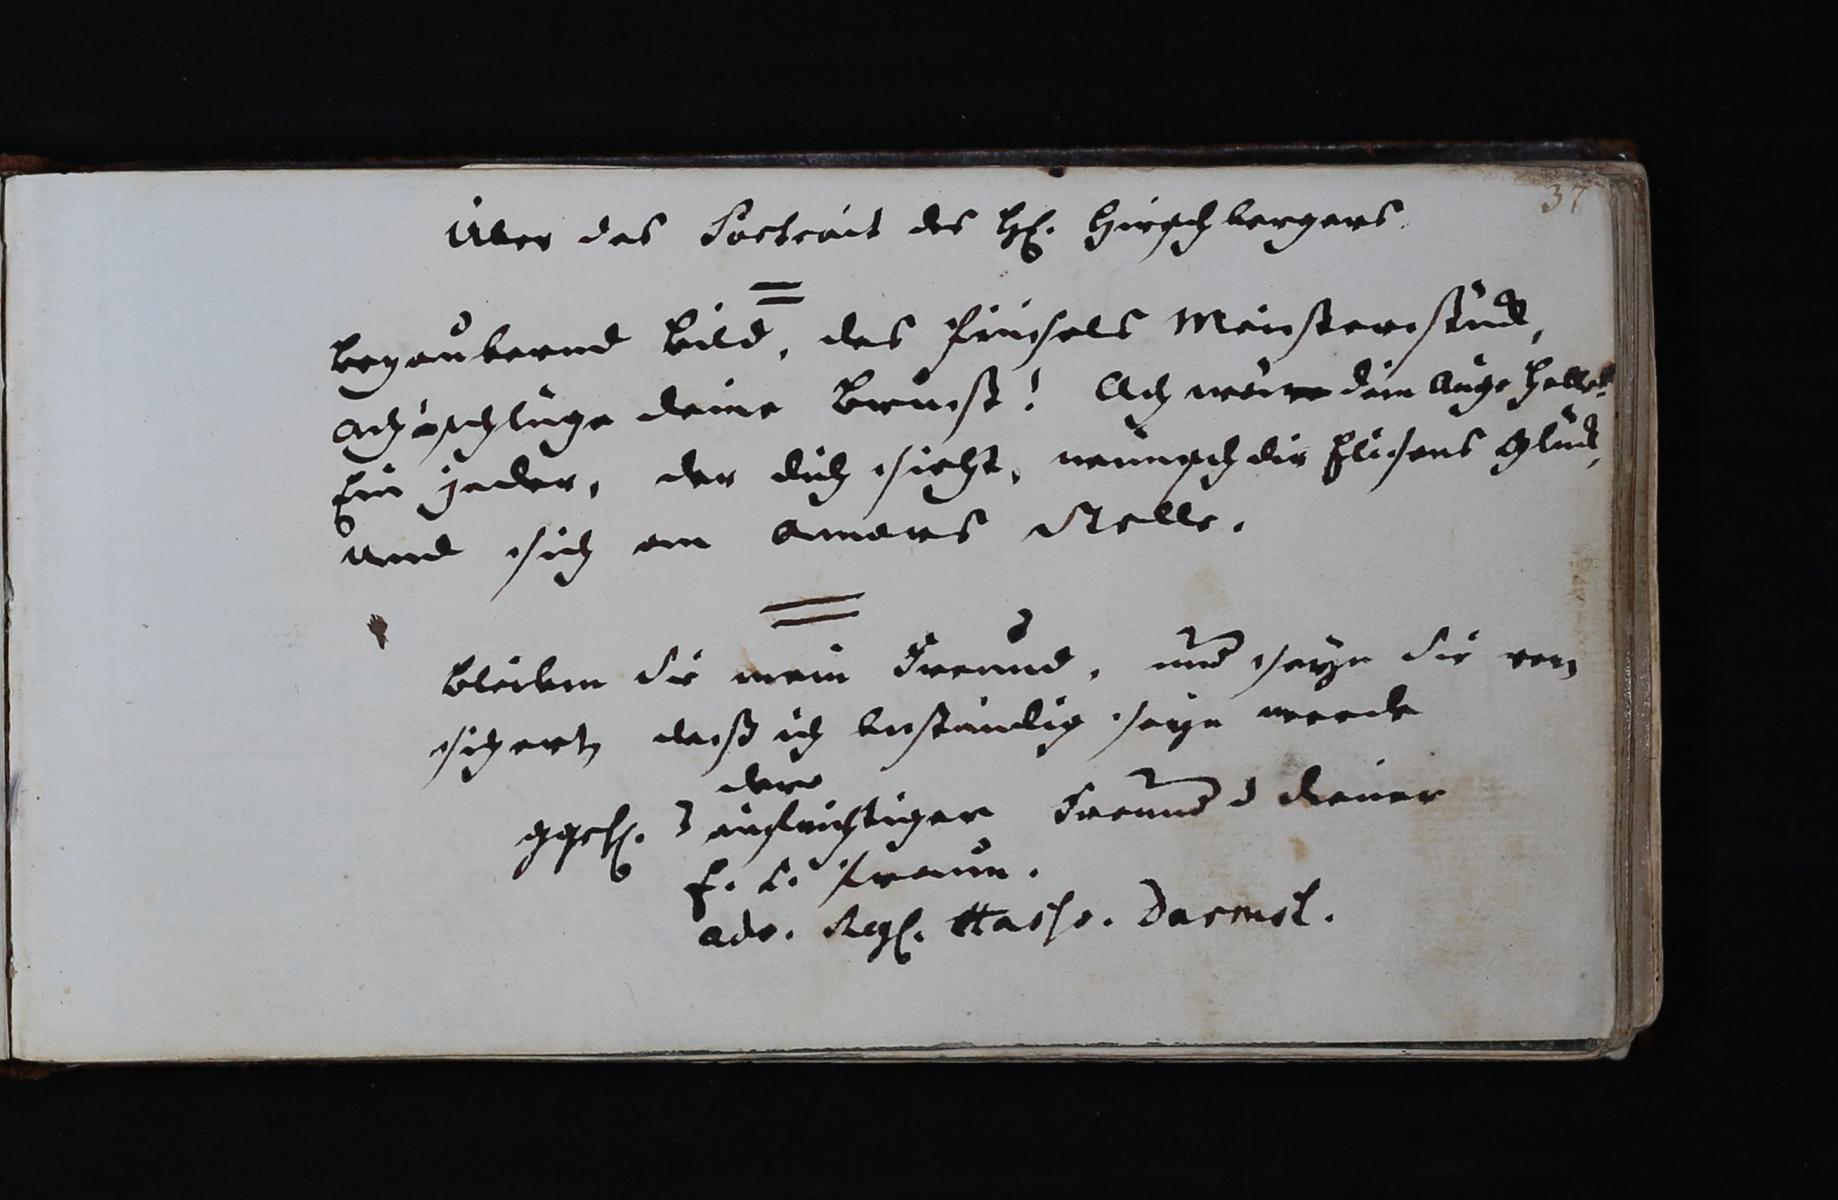 37
Über das Portrait des H. Hirschbergers.
Bezaubernd Bild, des Pinsels Meisterstück,
Ach schlüge deine Brust! Ach wäre dein Auge helle!
Ein jeder, der dich sieht, wünsch dir Elisens Glück,
und sich an Amors Stelle.
Bleiben Sie mein Freund, und seyn Sie ver,
sichert, daß ich beständig seyn werde
dero
aufrichtiger Freund Diener
E. L. Braun.
adv. Reg. Hasso. Darmst.